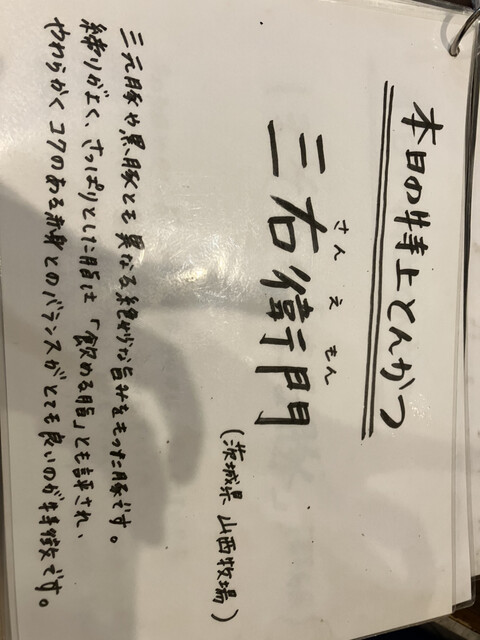 本日の特上とんかつ
さんえもん
三右衛門
(茨城県 山西牧場)
三元豚や黒豚とも異なる絶妙な旨みをもった豚です。
締りがよく、さっぱりとした脂は「飲める脂」とも評され、
やわらかくコクのある赤身とのバランスがとても良いのが特徴です。